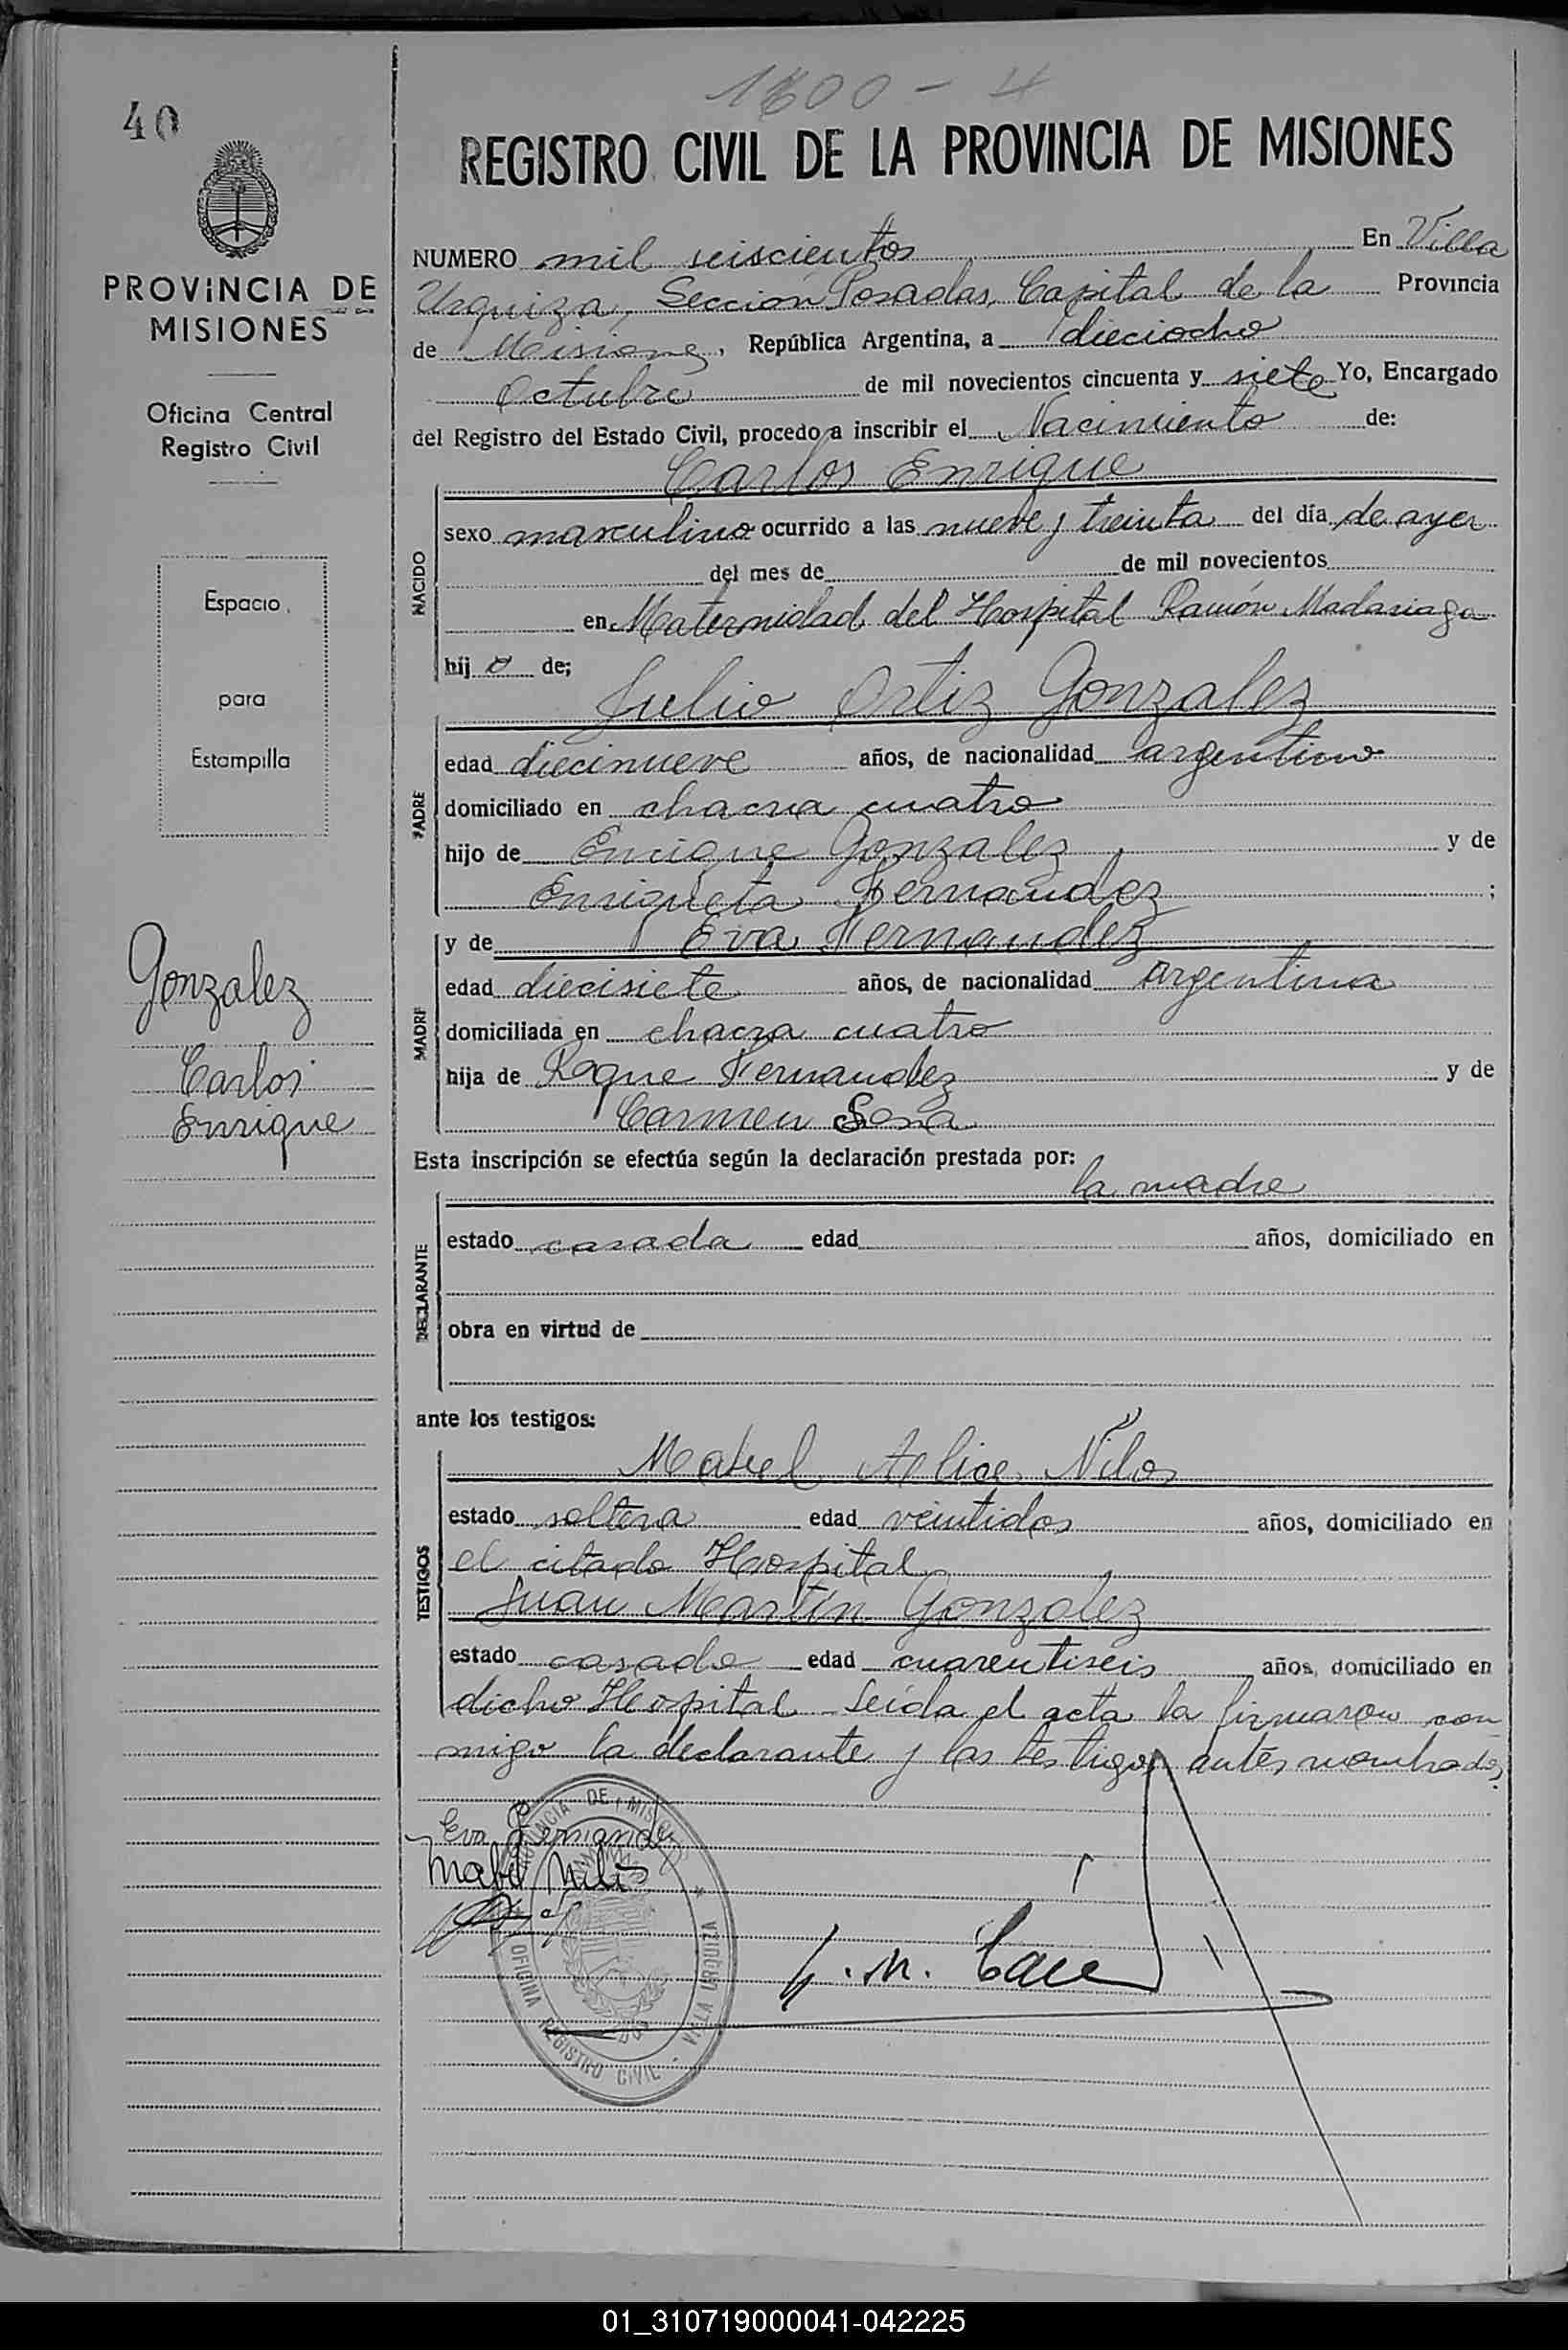 1600 - 4
40
REGISTRO CIVIL DE LA PROVINCIA DE MISIONES
PROVINCIA DE
MISIONES
Oficina Central
Registro Civil
Espacio
para
Estampilla
Gonzalez
Carlos
Enrique
NUMERO mil seiscientos En Villa
Urquiza, Sección Posadas, Capital de la Provincia
de Misiones, República Argentina, a dieciocho
Octubre de mil novecientos cincuenta y siete Yo, Encargado
del Registro del Estado Civil, procedo a inscribir el Nacimiento de:
Carlos Enrique
NACIDO
sexo masculino ocurrido a las nueve y treinta del día de ayer
del mes de de mil novecientos
en Maternidad del Hospital Ramón Madariaga
hij o de;
Julio Ortiz Gonzalez
PADRE
edad diecinueve años, de nacionalidad argentino
domiciliado en chacra cuatro
hijo de Enrique Gonzalez y de
Enriqueta Fernandez ;
y de Eva Fernandez
MADRE
edad diecisiete años, de nacionalidad argentina
domiciliada en chacra cuatro
hija de Roque Fernandez y de
Carmen Sosa
Esta inscripción se efectúa según la declaración prestada por:
la madre
DECLARANTE
estado casada edad años, domiciliado en
obra en virtud de
ante los testigos:
Mabel Nilos
TESTIGOS
estado soltera edad veintidos años, domiciliado en
el citado Hospital
Juan Martín Gonzalez
estado casado edad cuarentiseis años, domiciliado en
dicho Hospital - Leída el acta la firmaron con
migo la declarante y los testigos antes nombrados
Eva Fernandez
Mabel Nilos
PROVINCIA DE MISIONES
OFICINA REGISTRO CIVIL - VILLA URQUIZA
01_310719000041-042225